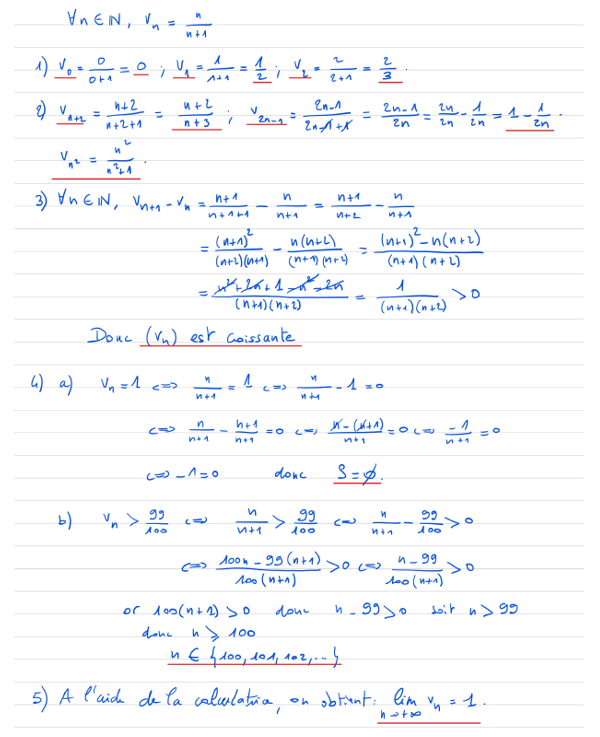 ∀n∈ℕ, Vn = n/(n+1)
1) V0 = 0/(0+1) = 0 ; V1 = 1/(1+1) = 1/2 ; V2 = 2/(2+1) = 2/3.
2) Vn+2 = (n+2)/(n+2+1) = (n+2)/(n+3) ; V2n-1 = (2n-1)/(2n-1+1) = (2n-1)/2n = 2n/2n - 1/2n = 1 - 1/2n.
Vn² = n²/(n²+1).
3) ∀n∈ℕ, Vn+1 - Vn = (n+1)/(n+1+1) - n/(n+1) = (n+1)/(n+2) - n/(n+1)
= (n+1)²/((n+2)(n+1)) - n(n+2)/((n+1)(n+2)) = ((n+1)² - n(n+2))/((n+1)(n+2))
= (n² + 2n + 1 - n² - 2n)/((n+1)(n+2)) = 1/((n+1)(n+2)) > 0
Donc (Vn) est croissante
4) a) Vn = 1 <=> n/(n+1) = 1 <=> n/(n+1) - 1 = 0
<=> n/(n+1) - (n+1)/(n+1) = 0 <=> (n-(n+1))/(n+1) = 0 <=> -1/(n+1) = 0
<=> -1 = 0 donc S = ∅.
b) Vn > 99/100 <=> n/(n+1) > 99/100 <=> n/(n+1) - 99/100 > 0
<=> (100n - 99(n+1))/(100(n+1)) > 0 <=> (n-99)/(100(n+1)) > 0
or 100(n+1) > 0 donc n-99 > 0 soit n > 99
donc n ⩾ 100
n ∈ {100, 101, 102, ...}
5) A l'aide de la calculatrice, on obtient : lim n→+∞ Vn = 1.